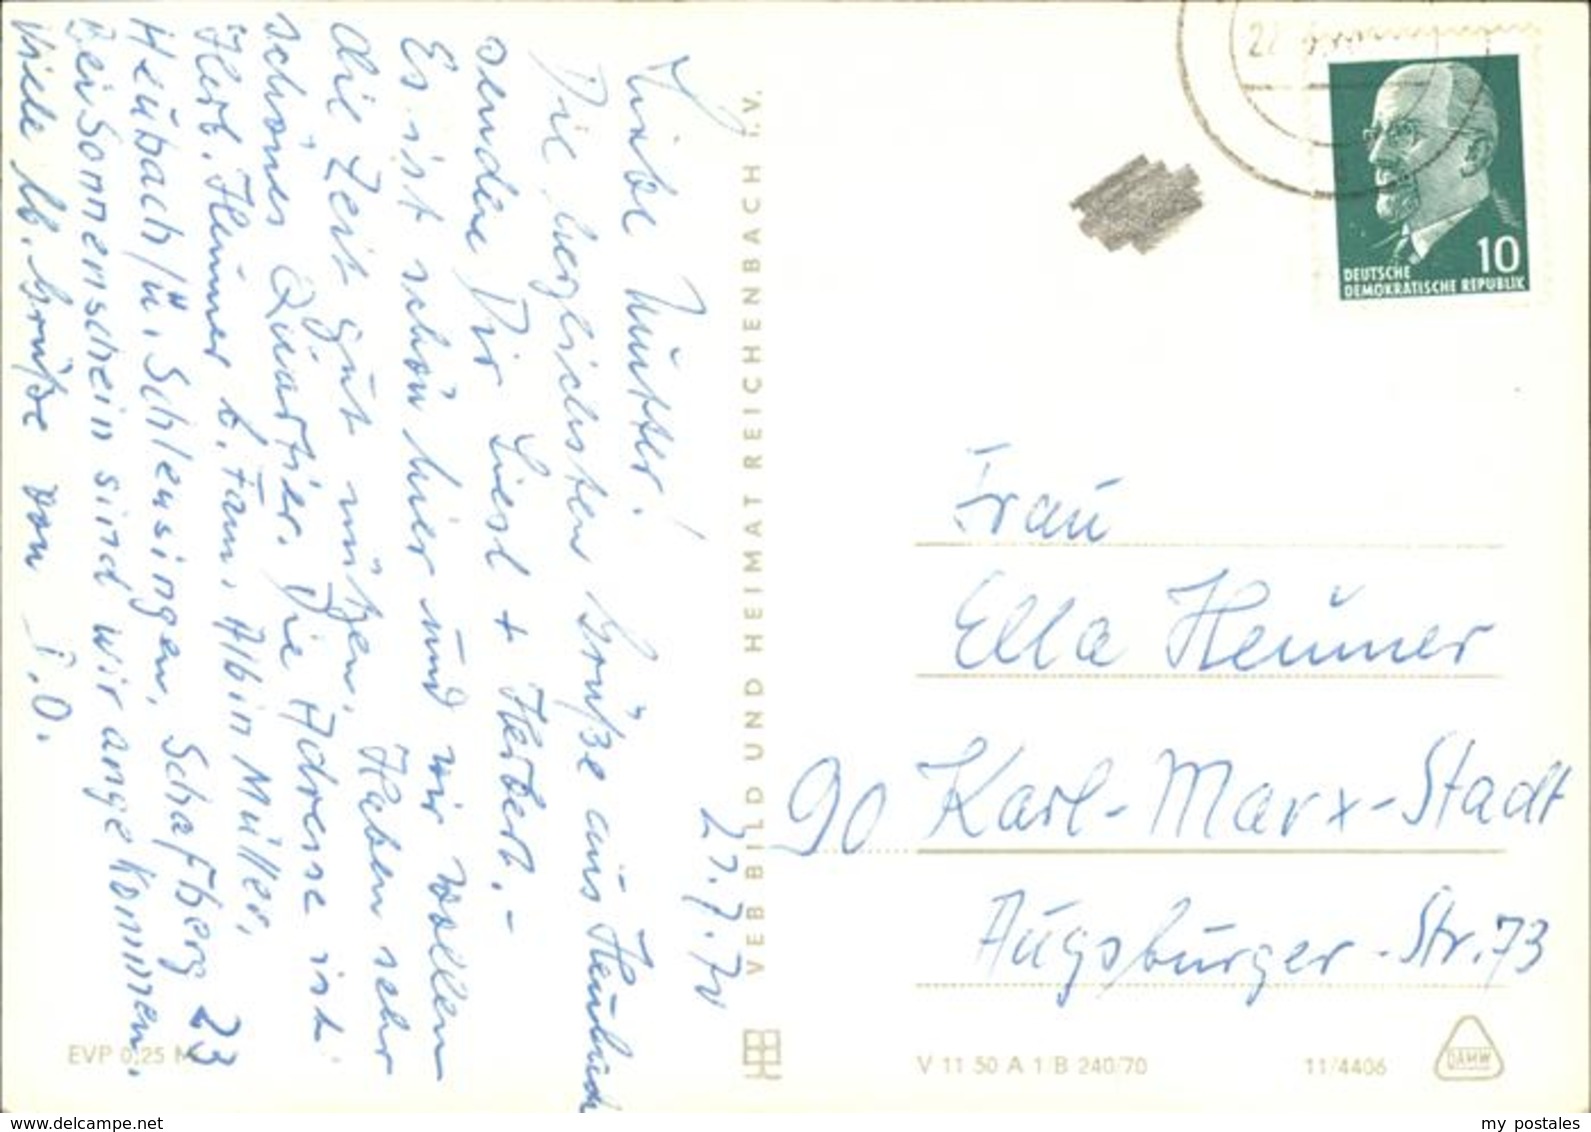 27.7.70
Liebe Mutter!
Die herzlichsten Grüße aus Heubach
senden Dir Liesl + Herbert.-
Es ist schön hier und wir wollen
die Zeit gut nützen. Haben sehr
schönes Quartier. Die Adresse ist
Herb. Heuner b. Fam. Albin Müller,
Heubach/ü. Schleusingen, Schafberg 23
Bei Sonnenschein sind wir angekommen.
Viele lb. Grüße von I. O.
VEB BILD UND HEIMAT REICHENBACH I. V.
EVP 0,25 M
10
DEUTSCHE
DEMOKRATISCHE REPUBLIK
Frau
Ella Heuner
90 Karl-Marx-Stadt
Augsburger-Str. 73
V 11 50 A 1/B 240/70
11/4406
DAMW
www.delcampe.net
my_postales